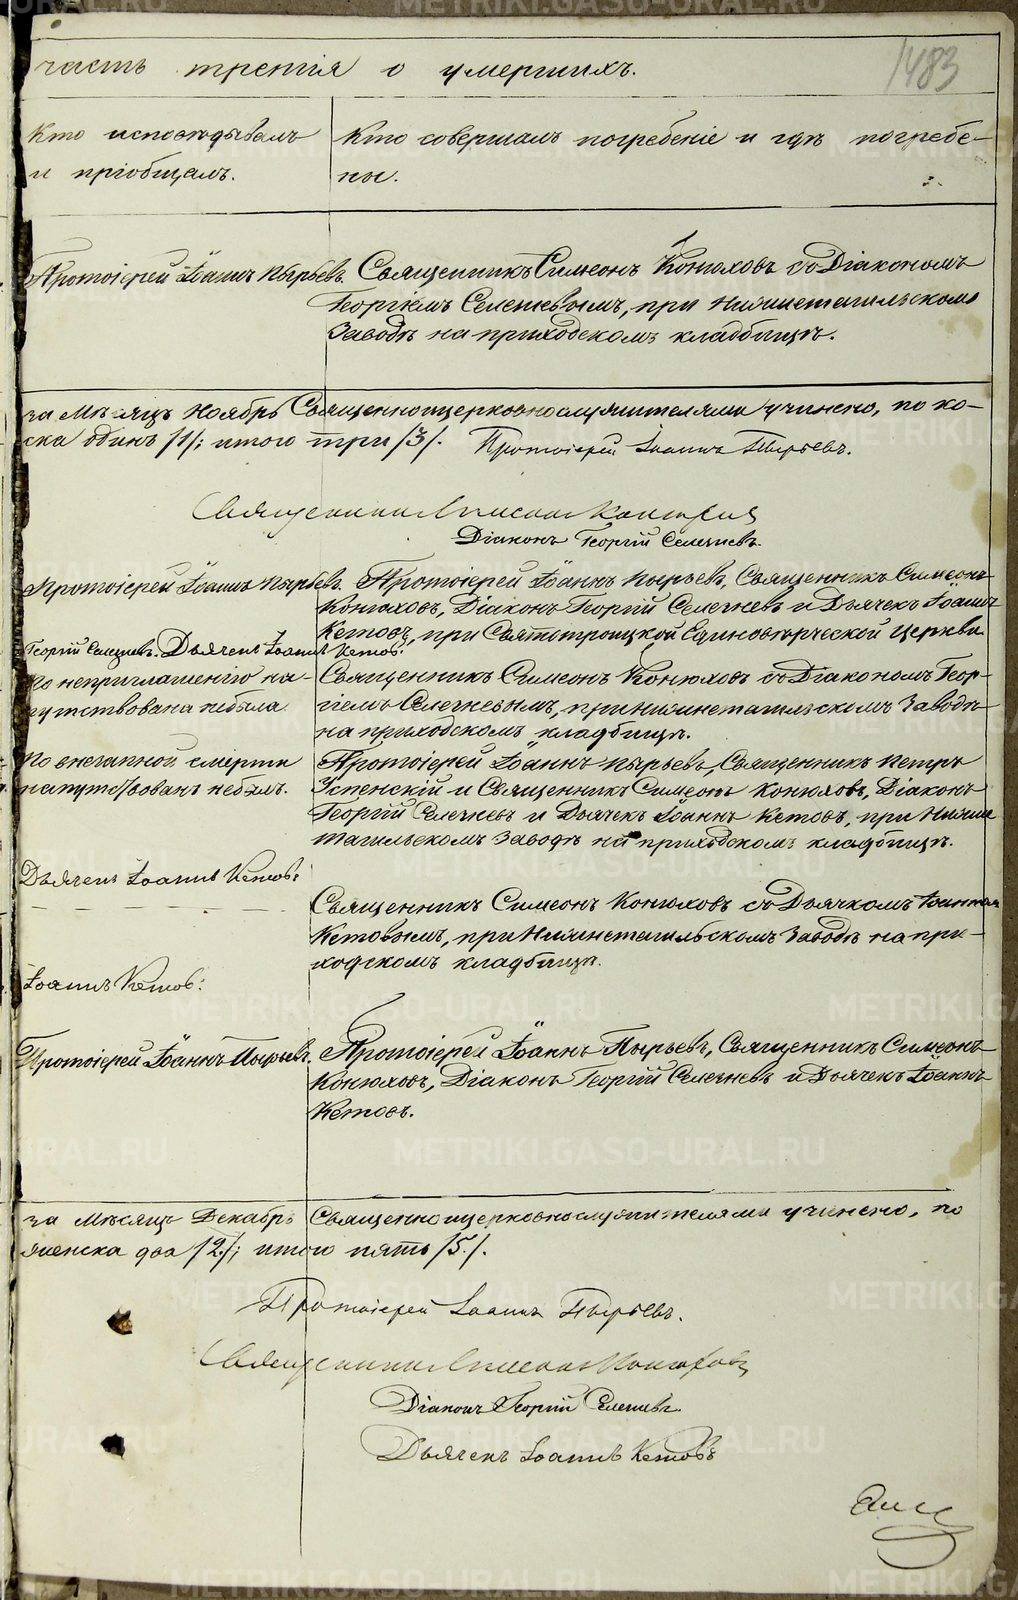 1483
часть третія о умершихъ.
Кто исповѣдывалъ
и пріобщалъ.
Кто совершалъ погребеніе и гдѣ погребе-
ны.
Протоіерей Іоаннъ Пырьевъ.
Священникъ Симеонъ Конюховъ съ Діакономъ
Георгіемъ Селечневымъ, при Нижнетагильскомъ
Заводѣ на приходскомъ кладбищѣ.
за Мѣсяцъ Ноябрь Священноицерковнослужителями учинено, по ко-
ска одинъ /1/; итого три /3/.
Протоіерей Іоаннъ Пырьевъ.
Священникъ Симеонъ Конюховъ
Діаконъ Георгій Селечневъ.
Протоіерей Іоаннъ Пырьевъ.
Протоіерей Іоаннъ Пырьевъ, Священникъ Симеонъ
Конюховъ, Діаконъ Георгій Селечневъ и Дьячекъ Іоаннъ
Кетовъ, при Святотроицкой Единовѣрческой Церкви
Георгій Селечневъ. Дьячекъ Іоаннъ Кетовъ.
По неприглашенію на-
путствована небыла
Священникъ Симеонъ Конюховъ съ Діакономъ Геор-
гіемъ Селечневымъ, при Нижнетагильскомъ Заводѣ
на приходскомъ кладбищѣ.
По внезапной смерти
напутствованъ небылъ.
Протоіерей Іоаннъ Пырьевъ, Священникъ Петръ
Успенскій и Священникъ Симеонъ Конюховъ, Діаконъ
Георгій Селечневъ и Дьячекъ Іоаннъ Кетовъ, при Нижне
тагильскомъ Заводѣ на приходскомъ кладбищѣ.
Дьячекъ Іоаннъ Кетовъ:
Священникъ Симеонъ Конюховъ съ Дьячкомъ Іоанномъ
Кетовымъ, при Нижнетагильскомъ Заводѣ на при-
ходскомъ кладбищѣ.
Іоаннъ Кетовъ:
Протоіерей Іоаннъ Пырьевъ.
Протоіерей Іоаннъ Пырьевъ, Священникъ Симеонъ
Конюховъ, Діаконъ Георгій Селечневъ и Дьячекъ Іоаннъ
Кетовъ.
за Мѣсяцъ Декабрь Священноицерковнослужителями учинено, по
женска два /2./; итого пять /5./.
Протоіерей Іоаннъ Пырьевъ.
Священникъ Симеонъ Конюховъ
Діаконъ Георгій Селечневъ.
Дьячекъ Іоаннъ Кетовъ
METRIKI.GASO-URAL.RU